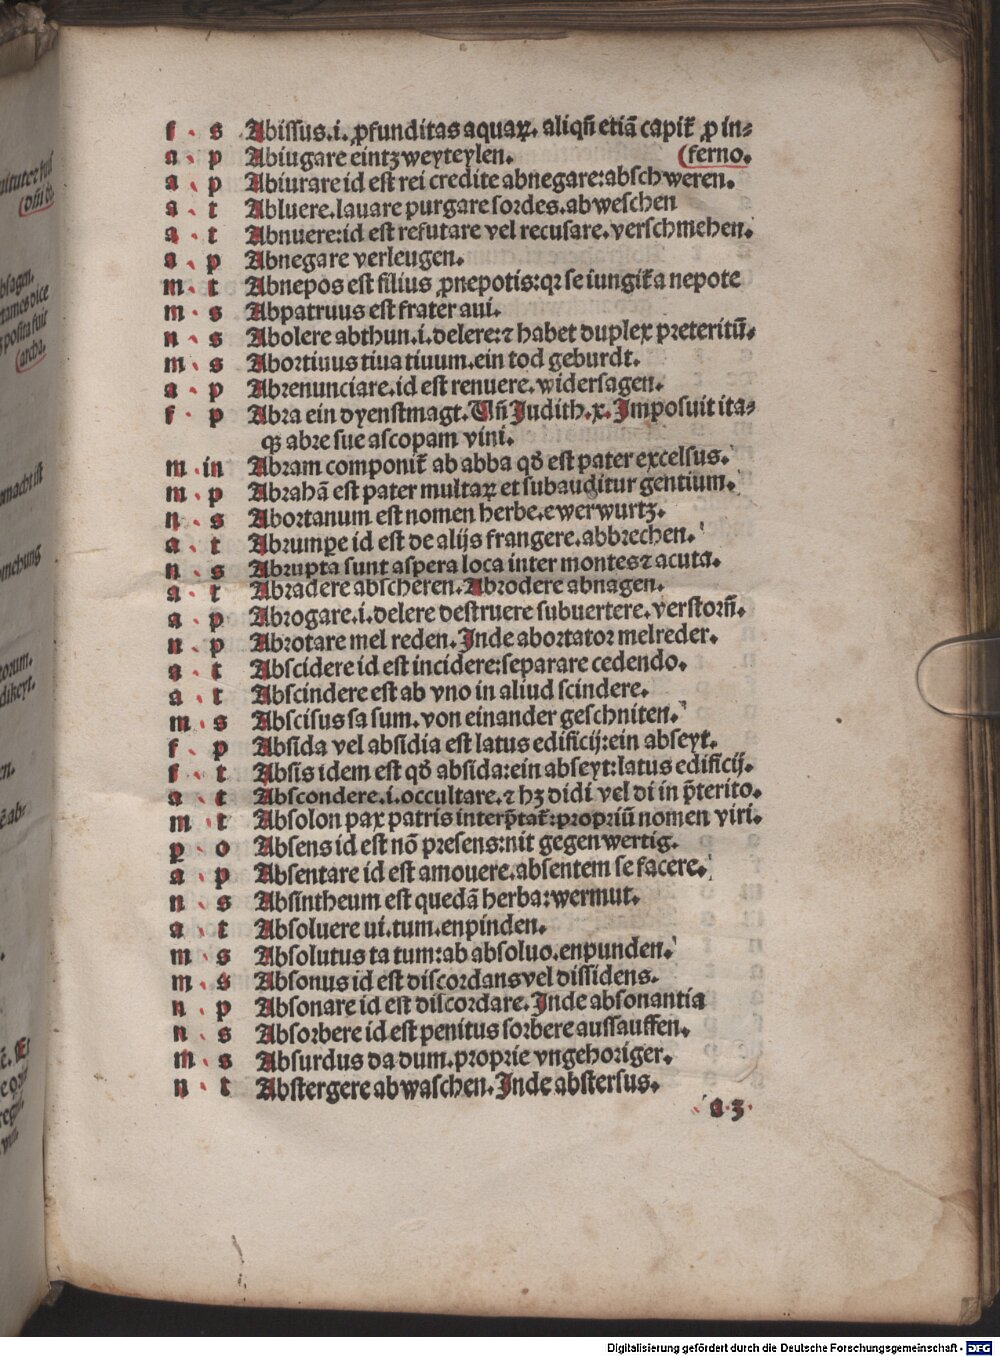 f · s Abiſſus.i. ꝓfunditas aquaꝝ. aliqn̄ etiā capit̄ ꝓ in⸗
a · p Abiugare eintzweyteylen. (ferno.
a · p Abiurare id eſt rei credite abnegare:abſchweren.
a · t Abluere.lauare purgare ſordes.abweſchen
a · t Abnuere:id eſt refutare vel recuſare.verſchmehen.
a · p Abnegare verleugen.
m · t Abnepos eſt filius ꝓnepotis:qꝛ ſe iungit̄ a nepote
m · s Abpatruus eſt frater aui.
n · s Abolere abthun.i.delere:⁊ habet duplex preteritū.
m · s Abortiuus tiua tiuum.ein tod geburdt.
a · p Abrenunciare.id eſt renuere.widerſagen.
f · p Abra ein dyenſtmagt.Vn̄ Judith.x.Impoſuit ita⸗
qꝫ abre ſue aſcopam vini.
m · in Abram componit̄ ab abba qd̓ eſt pater excelſus.
m · p Abrahā eſt pater multaꝝ et ſubauditur gentium.
n · s Abortanum eſt nomen herbe.ewerwurtz.
a · t Abrumꝑe id eſt de alijs frangere.abbrechen.
n · s Abrupta ſunt aſpera loca inter montes ⁊ acuta.
a · t Abradere abſcheren.Abrodere abnagen.
a · p Abrogare.i.delere deſtruere ſubuertere.verſtorn̄.
n · p Abrotare mel reden.Inde abortator melreder.
a · t Abſcidere id eſt incidere:ſeparare cedendo.
a · t Abſcindere eſt ab vno in aliud ſcindere.
m · s Abſciſus ſa ſum.von einander geſchniten.
f · p Abſida vel abſidia eſt latus edificij:ein abſeyt.
f · t Abſis idem eſt qd̓ abſida:ein abſeyt:latus edificij.
a · t Abſcondere.i.occultare.⁊ hꝫ didi vel di in p̄terito.
m · t Abſolon pax patris interp̄tat̄:propriū nomen viri.
ꝑ · o Abſens id eſt nō preſens:nit gegenwertig.
a · p Abſentare id eſt amouere.abſentem ſe facere.
n · s Abſintheum eſt quedā herba:wermut.
a · t Abſoluere ui.tum.enpinden.
m · s Abſolutus ta tum:ab abſoluo.enpunden.
m · s Abſonus id eſt diſcordans vel diſſidens.
n · p Abſonare id eſt diſcordare.Inde abſonantia
n · s Abſorbere id eſt penitus ſorbere auſſauffen.
m · s Abſurdus da dum.proprie vngehoriger.
n · t Abſtergere abwaſchen.Inde abſterſus.
a 3
Digitalisierung gefördert durch die Deutsche Forschungsgemeinschaft - DFG